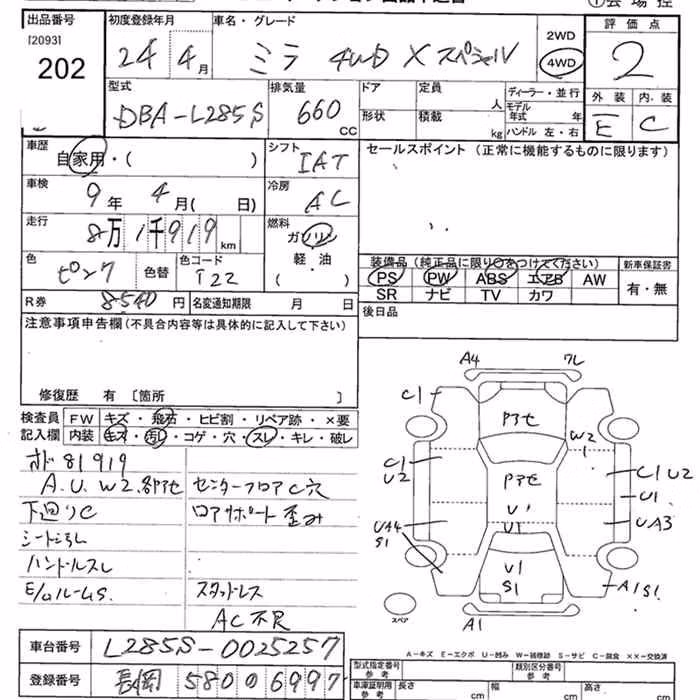 出品番号
[2093]
202
初度登録年月
24年 4月
車名・グレード
ミラ 4WD X スペシャル
2WD
4WD
評価点
2
外装 内装
E C
型式
DBA-L285S
排気量
660 CC
ドア 定員 人
形状 積載 kg
ディーラー・並行
モデル年式 年
ハンドル 左・右
車歴
自家用・( )
シフト
IAT
セールスポイント (正常に機能するものに限ります)
車検
9年 4月( 日)
冷房
AC
走行
8万1千919 km
燃料
ガソリン
軽・油
( )
色
ピンク 色替
色コード
T22
R券 8540 円 名変通知期限 月 日
装備品 (純正品に限り○をつけてください) 新車保証書
PS PW ABS エアB AW 有・無
SR ナビ TV カワ
後日品
注意事項申告欄 (不具合内容等は具体的に記入して下さい)
修復歴 有 〔箇所 〕
検査員 FW キズ・飛石・ヒビ割・リペア跡・×要
記入欄 内装 キズ・汚レ・コゲ・穴・スレ・キレ・破レ
81919
A.U.W2.部アセ センターフロアC穴
下廻りC ロアサポート歪み
ハンドルスレ
スタッドレス
AC不良
A4 フレ
C1
Pアセ
W2
1
C1
U2
Pアセ
U1
U1
C1 U2
U1
UA4
S1
UA3
U1
S1
A1S1
スペア
A1
A-キズ E-エクボ U-凹み W-補修跡 S-サビ C-腐食 ××-交換済
車台番号 L285S-0025257
登録番号 長岡 580 0 6997
型式指定番号 参考 類別区分番号 参考
車庫証明用 参考 長さ cm 幅 cm 高さ cm